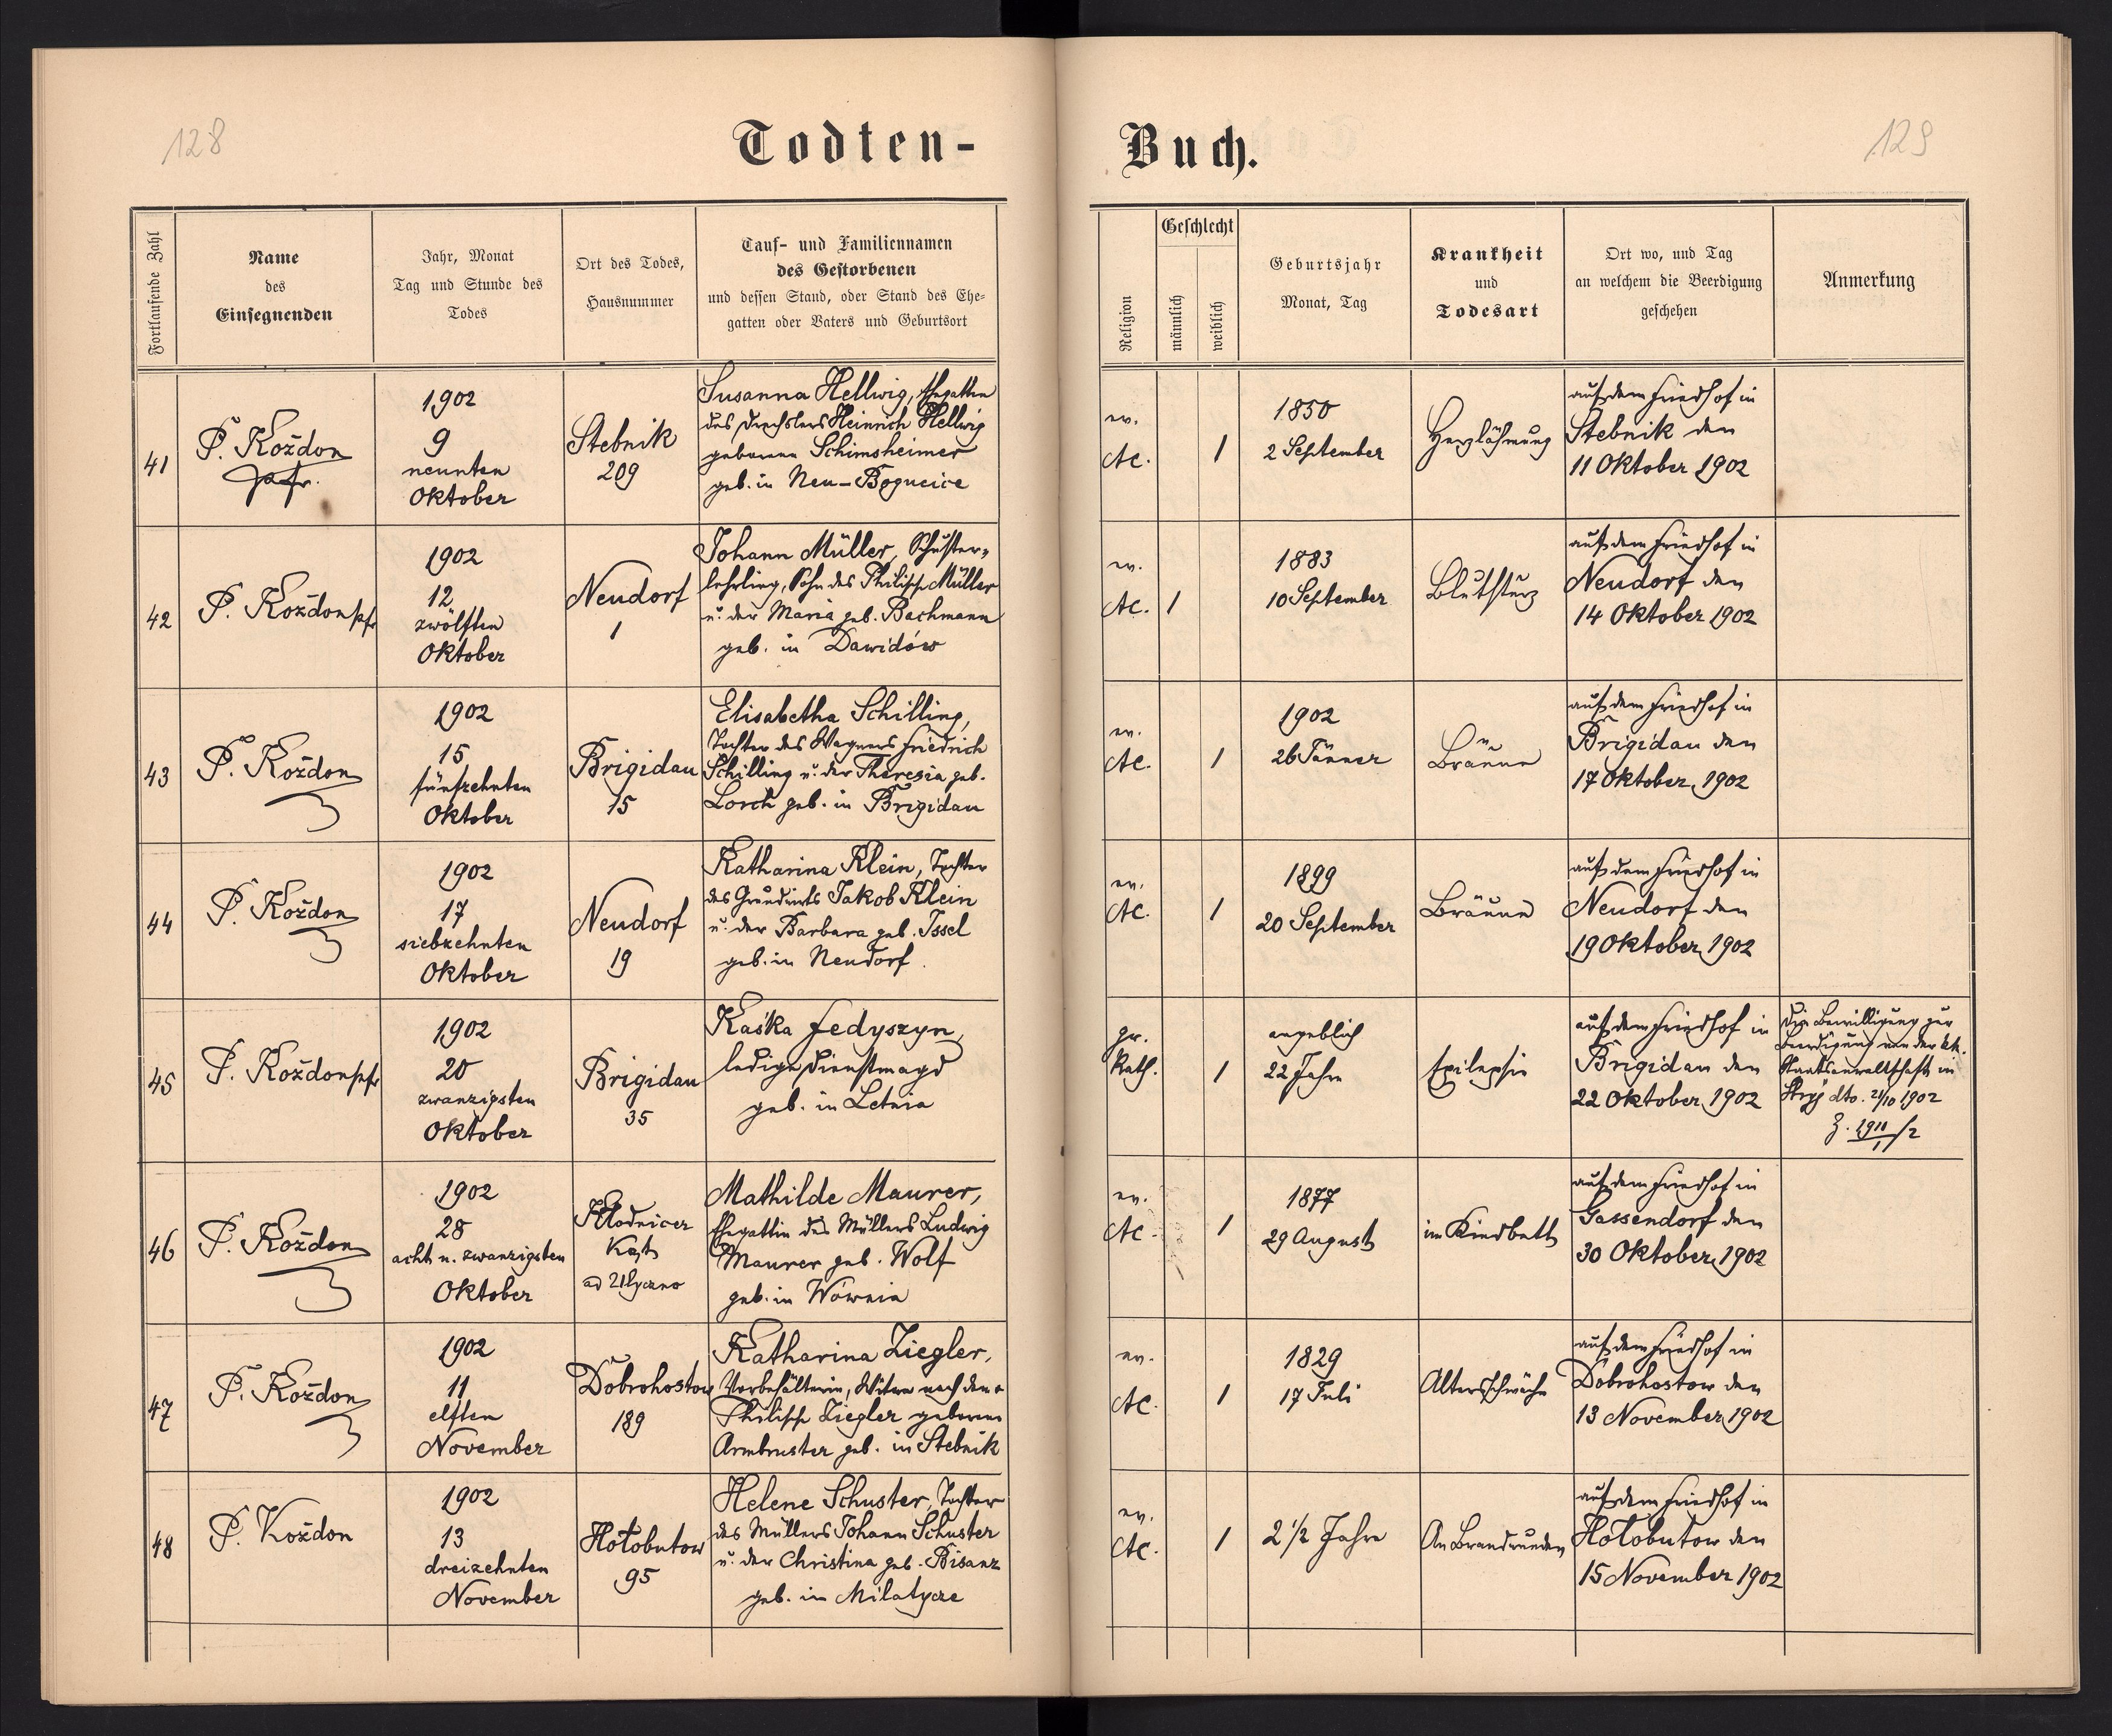 128
Todten-
Fortlaufende Zahl
Name
des
Einsegnenden
Jahr, Monat
Tag und Stunde des
Todes
Ort des Todes,
Hausnummer
Tauf- und Familiennamen
des Gestorbenen
und dessen Stand, oder Stand des Ehe-
gatten oder Vaters und Geburtsort
41
P. Koždon
pfr.
1902
9
neunten
Oktober
Stebnik
209
Susanna Hellwig, Ehegattin
des Drechslers Heinrich Hellwig
geborene Schimsheimer
geb. in Neu-
42
P. Koždon pfr
1902
12
zwölften
Oktober
Neudorf
1
Johann Müller, Schuster-
lehrling, Sohn des Philipp Müller
u. der Maria geb. Bachmann
geb. in Dawidów
43
P. Koždon
1902
15
fünfzehnten
Oktober
Brigidau
15
Elisabetha Schilling,
Tochter des Wagners Friedrich
Schilling u. der Theresia geb.
Lorch geb. in Brigidau
44
P. Koždon
1902
17
siebzehnten
Oktober
Neudorf
19
Katharina Klein, Tochter
des Grundwirts Jakob Klein
u. der Barbara geb. Issel
geb. in Neudorf
45
P. Koždon pfr
1902
20
zwanzigsten
Oktober
Brigidau
35
Kaśka Fedyszyn,
ledige Dienstmagd
geb. in Letnia
46
P. Koždon
1902
28
acht u. zwanzigsten
Oktober
ad Ulyczno
Mathilde Maurer,
Ehegattin des Müllers Ludwig
Maurer geb. Wolf
geb. in Wownia
47
P. Koždon
1902
11
elften
November
Dobrohostow
189
Katharina Ziegler,
Vorbehälterin, Witwe nach dem
Philipp Ziegler geborene
Armbruster geb. in Stebnik
48
P. Koždon
1902
13
dreizehnten
November
Hołobutow
95
Helene Schuster, Tochter
des Müllers Johann Schuster
u. der Christina geb. Bisanz
geb. in Milatycze
Buch.
129
Religion
Geschlecht
männlich
weiblich
Geburtsjahr
Monat, Tag
Krankheit
und
Todesart
Ort wo, und Tag
an welchem die Beerdigung
geschehen
Anmerkung
ev.
AC.
1
1850
2 September
Herzlähmung
auf dem Friedhof in
Stebnik den
11 Oktober 1902
ev.
AC.
1
1883
10 September
Blutsturz
auf dem Friedhof in
Neudorf den
14 Oktober 1902
ev.
AC.
1
1902
26 Jänner
Bräune
auf dem Friedhof in
Brigidau den
17 Oktober 1902
ev.
AC.
1
1899
20 September
Bräune
auf dem Friedhof in
Neudorf den
19 Oktober 1902
gr.
Kath.
1
angeblich
22 Jahre
Epilepsie
auf dem Friedhof in
Brigidau den
22 Oktober 1902
Die Bewilligung zur
Beerdigung von der kk.
Staatsanwaltschaft in
Stryj dto. 21/10 1902
ev.
AC.
1
1877
29 August
im Kindbett
auf dem Friedhof in
Gassendorf den
30 Oktober 1902
ev.
AC.
1
1829
17 Juli
Altersschwäche
auf dem Friedhof in
Dobrohostow den
13 November 1902
ev.
AC.
1
2 1/2 Jahre
An Brandwunden
auf dem Friedhof in
Hołobutow den
15 November 1902